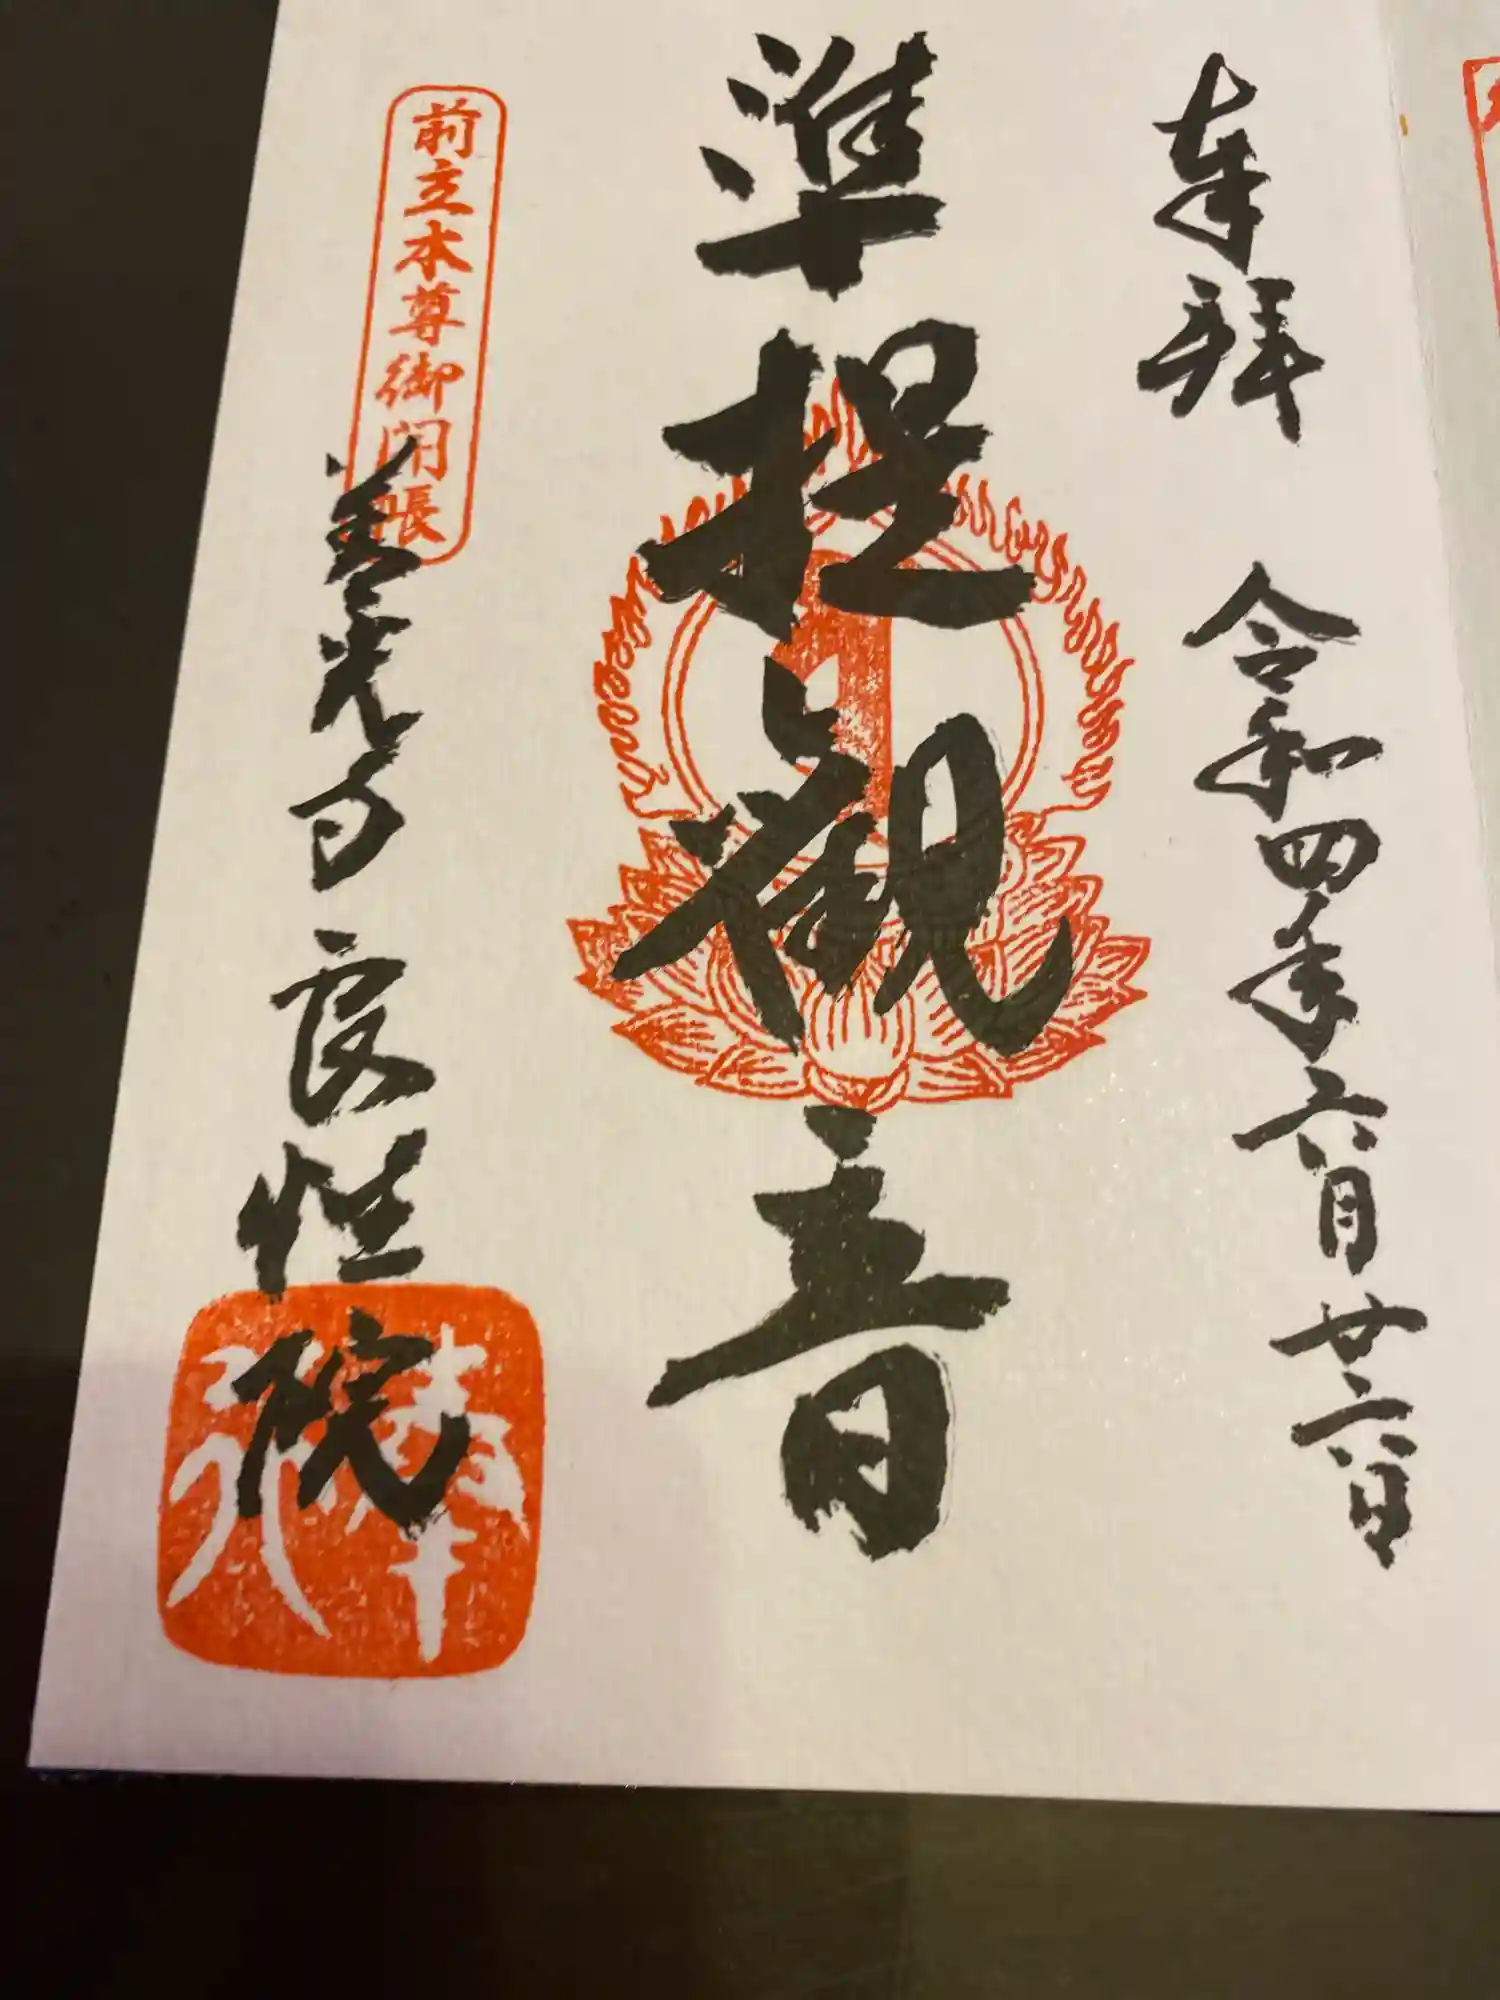 奉拝
令和四年六月廿六日
準提観音
前立本尊御開帳
善光寺
良性院